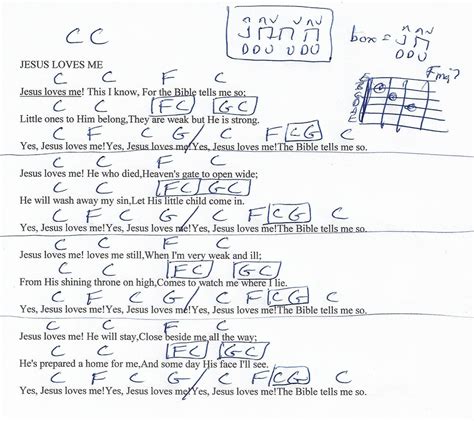 C C
box =
D D U
Fmj7
JESUS LOVES ME
C C F C
Jesus loves me! This I know, For the Bible tells me so;
C C FC GC
Little ones to Him belong,They are weak but He is strong.
C F C G / C F CG C
Yes, Jesus loves me!Yes, Jesus loves me!Yes, Jesus loves me!The Bible tells me so.
C C F C
Jesus loves me! He who died,Heaven's gate to open wide;
C C FC GC
He will wash away my sin,Let His little child come in.
C F C G / C F CG C
Yes, Jesus loves me!Yes, Jesus loves me!Yes, Jesus loves me!The Bible tells me so.
C C F C
Jesus loves me! loves me still,When I'm very weak and ill;
C C FC GC
From His shining throne on high,Comes to watch me where I lie.
C F C G / C F CG C
Yes, Jesus loves me!Yes, Jesus loves me!Yes, Jesus loves me!The Bible tells me so.
C C F C
Jesus loves me! He will stay,Close beside me all the way;
C C FC GC
He's prepared a home for me,And some day His face I'll see.
C F C G / C F CG C
Yes, Jesus loves me!Yes, Jesus loves me!Yes, Jesus loves me!The Bible tells me so.